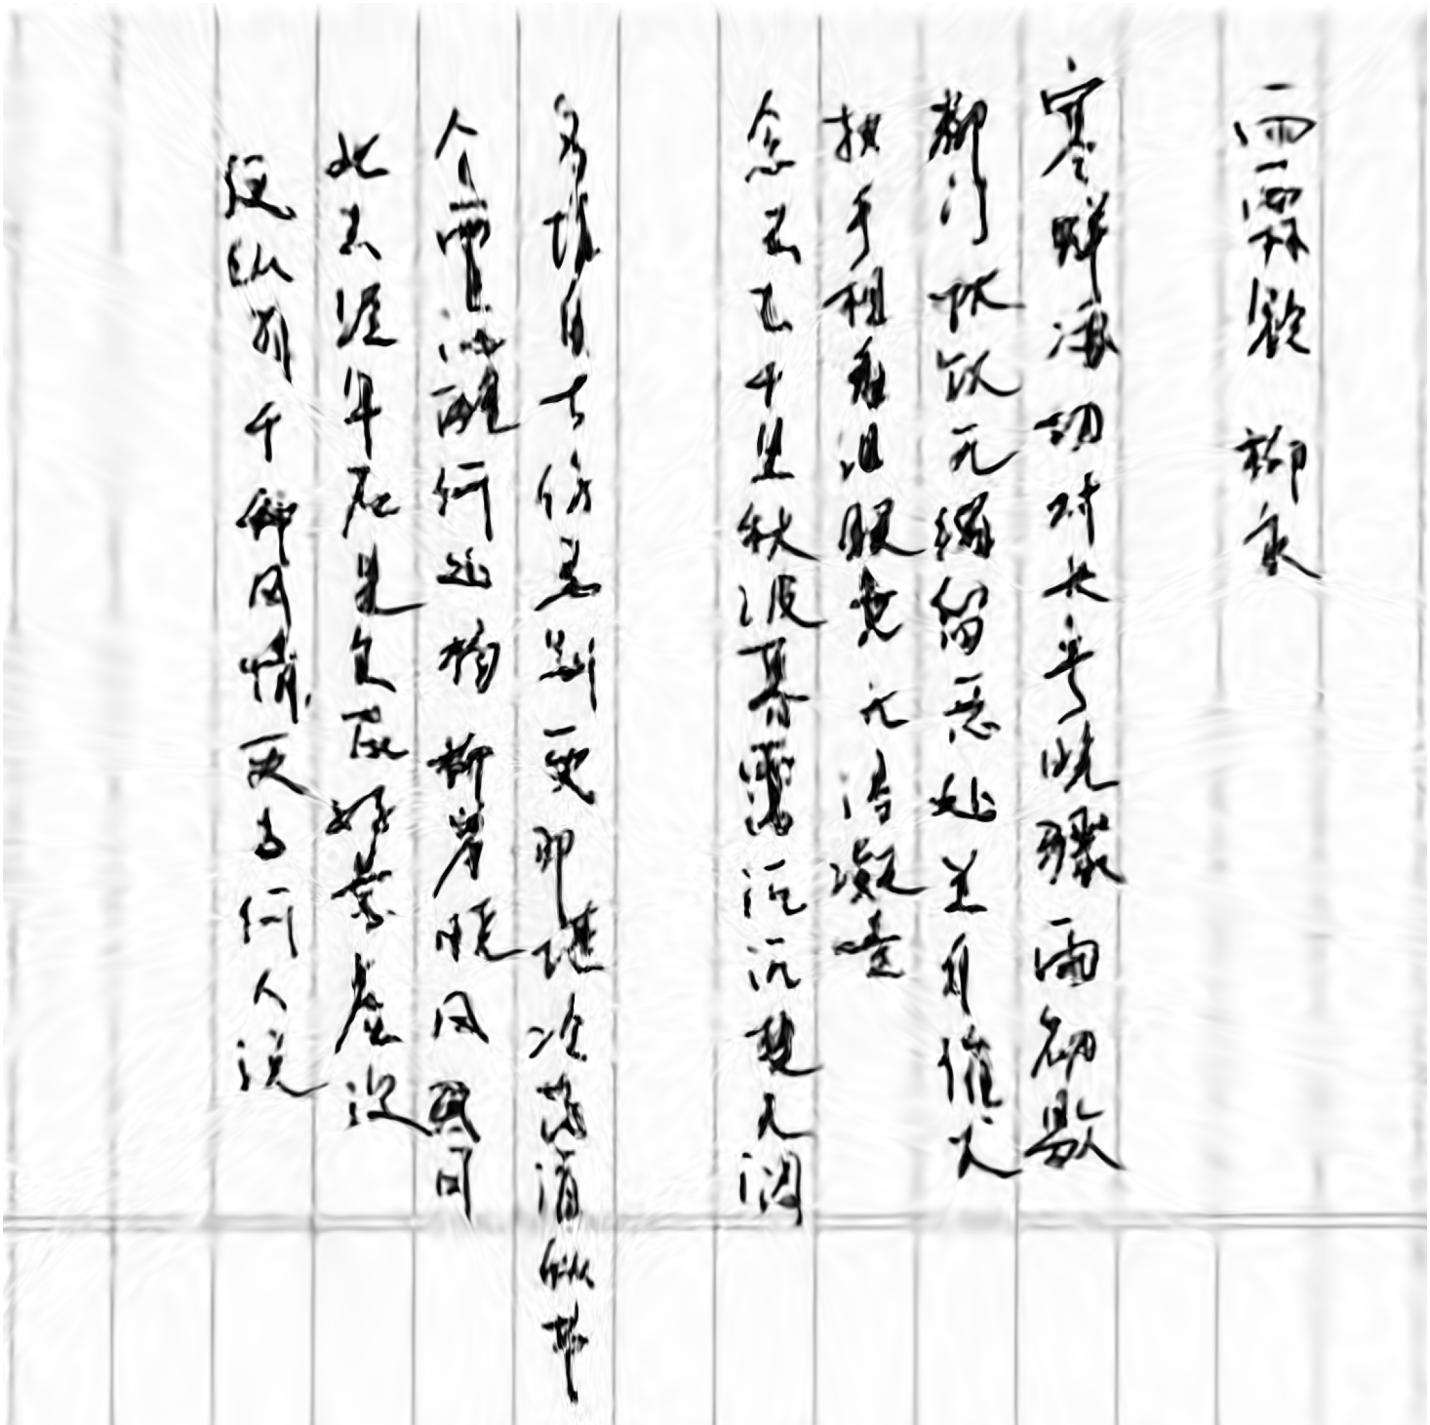 雨霖铃 柳永
寒蝉凄切对长亭晚骤雨初歇
都门帐饮无绪留恋处兰舟催发
执手相看泪眼竟无语凝噎
念去去千里秋波暮霭沉沉楚天阔
多情自古伤离别更那堪冷落清秋节
今宵酒醒何处杨柳岸晓风残月
此去经年应是良辰好景虚设
便纵有千种风情更与何人说